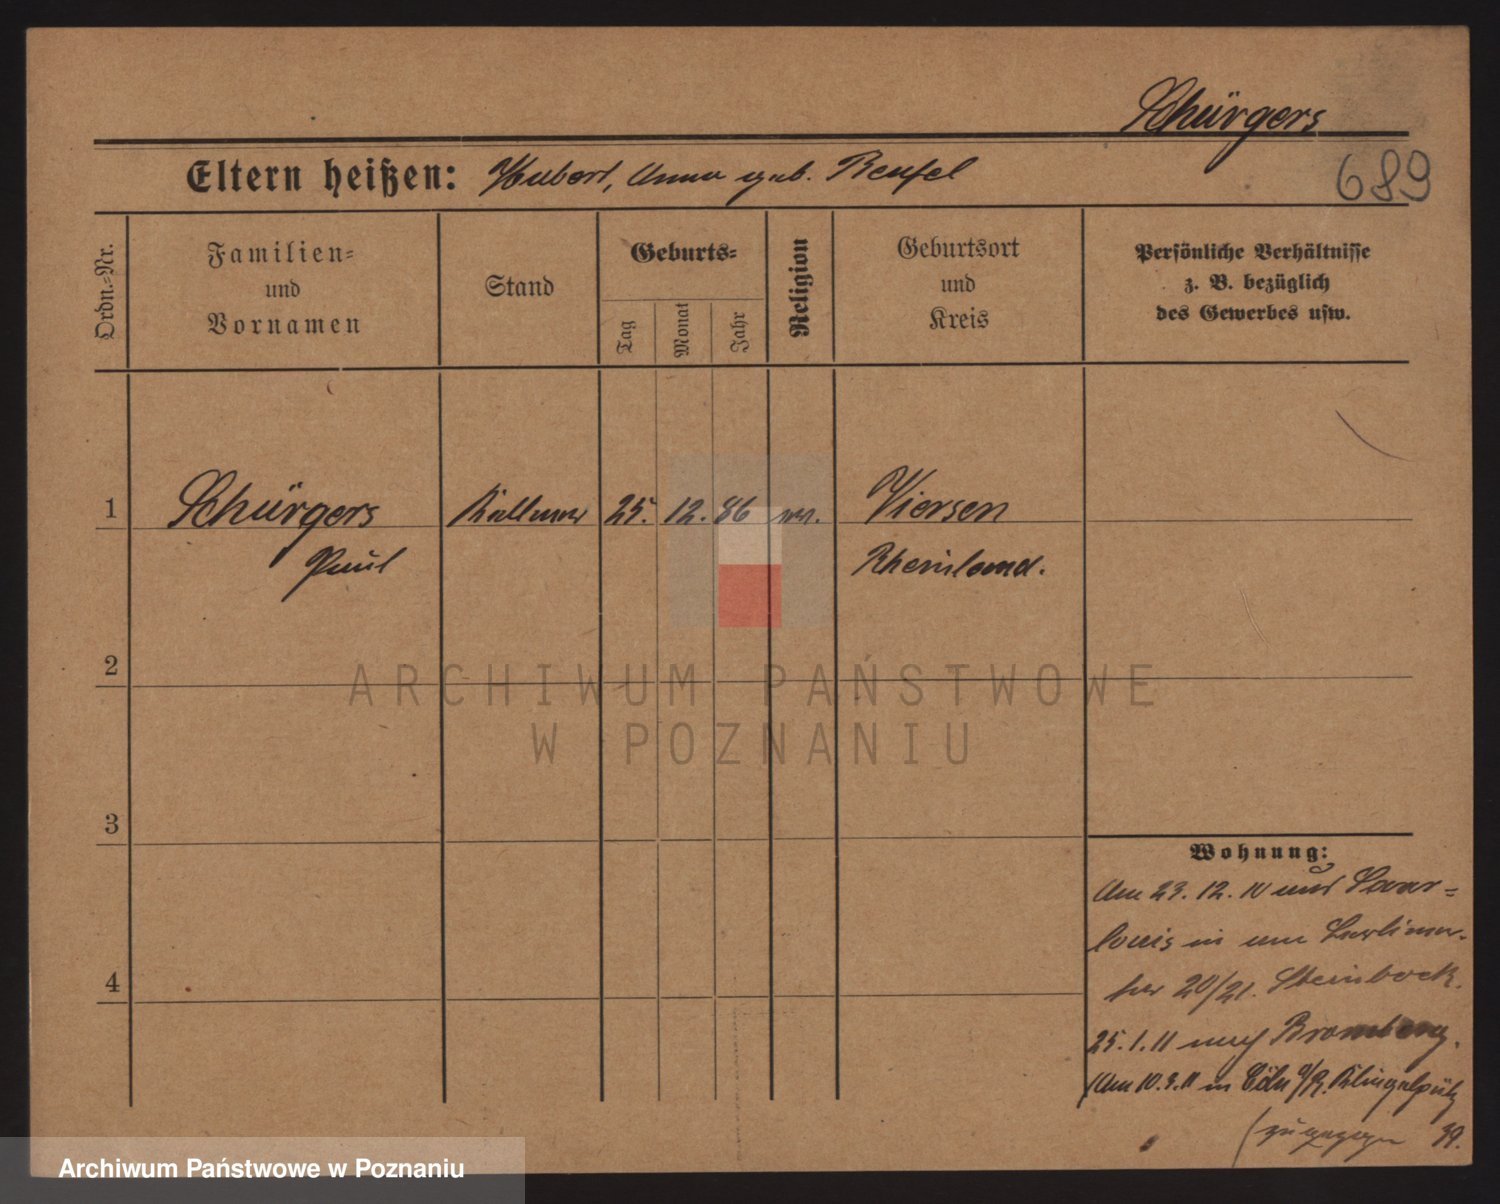 Schürgers
689
Eltern heißen: Hubert, Anna geb.
Ordn.=Nr.
Familien=
und
Vornamen
Stand
Geburts=
Tag
Monat
Jahr
Religion
Geburtsort
und
Kreis
Persönliche Verhältnisse
z. B. bezüglich
des Gewerbes usw.
1 Schürgers Kellner 25. 12. 86 Viersen
Paul Rheinland.
2
ARCHIWUM PAŃSTWOWE
W POZNANIU
3
4
Wohnung:
Am 23. 12. 10 aus Saar=
louis in
20/21. Steinbock.
25. 1. 11 nach Bromberg.
Am 10. 3. 11 in Cöln a/R. Klingelpütz
zugezogen 39.
Archiwum Państwowe w Poznaniu